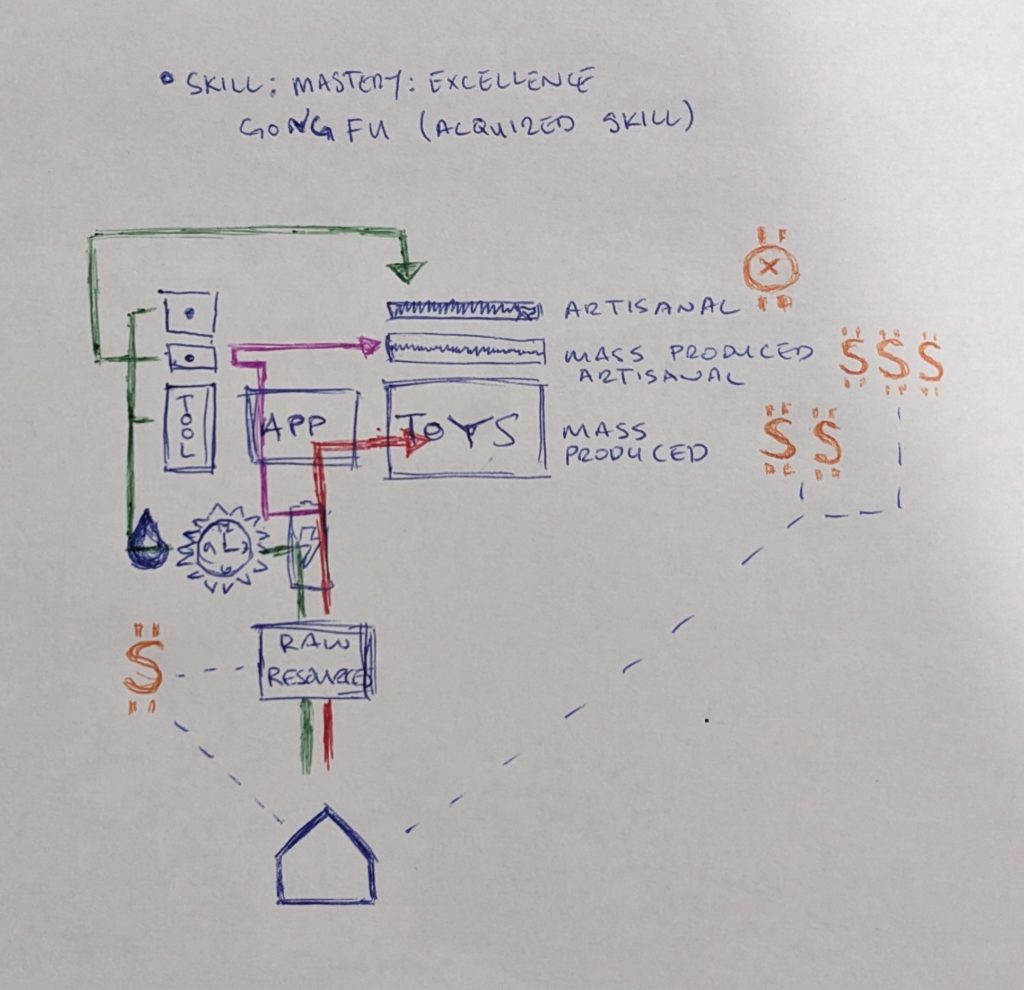 • SKILL; MASTERY: EXCELLENCE
GONG FU (ACQUIRED SKILL)
ARTISANAL
MASS PRODUCED
ARTISANAL
TOOL
APP
TOYS
MASS
PRODUCED
S S S
S S
RAW
RESOURCES
S